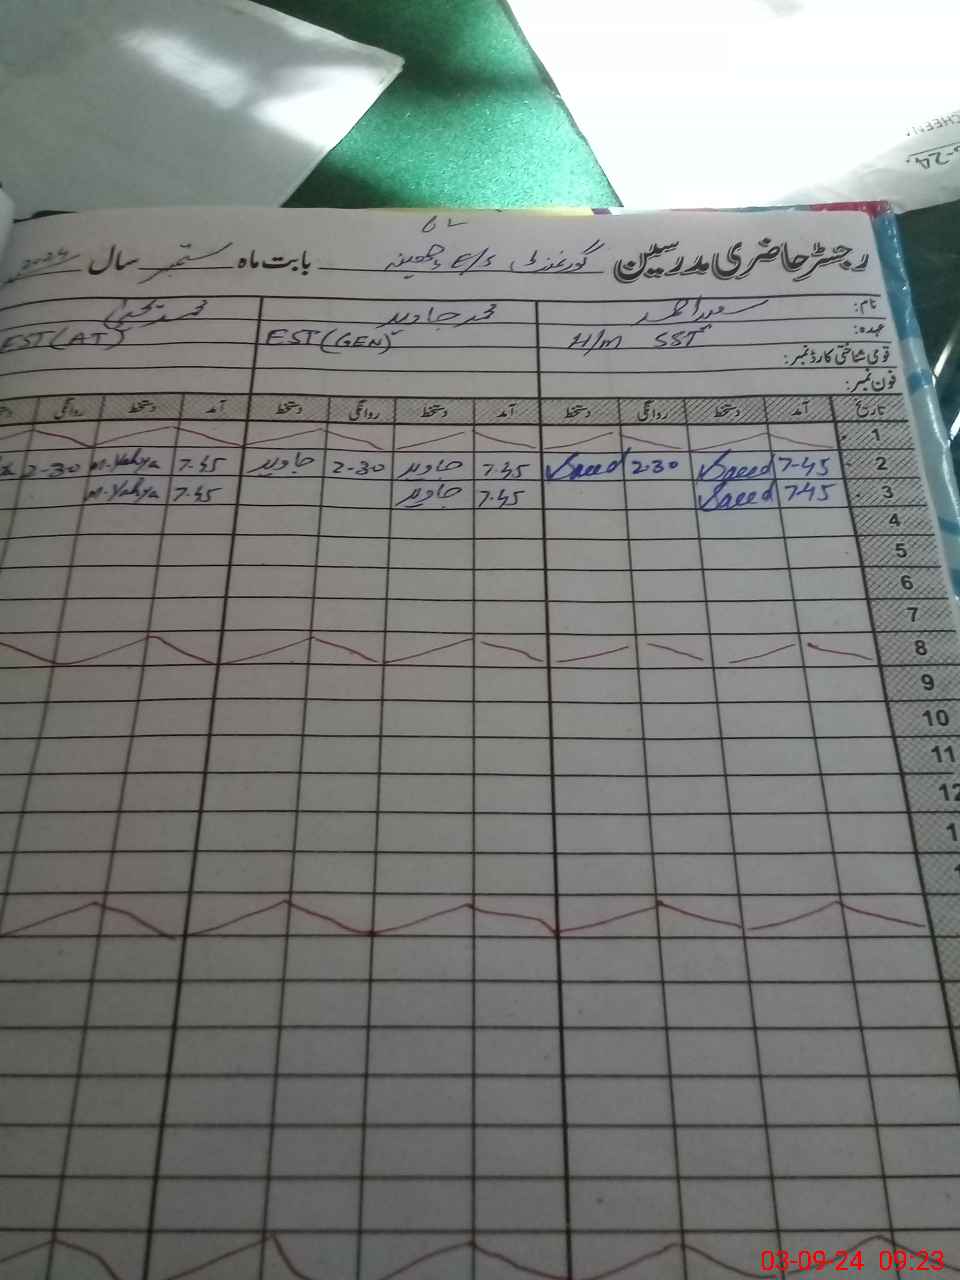 رجسٹر حاضری مدرسین گورنمنٹ بابت ماہ ستمبر سال 2024
نام: سعید احمد محمد جاوید محمد یحییٰ
عہدہ: H/M SST EST(GEN) EST(AT)
قومی شناختی کارڈ نمبر:
فون نمبر:
تاریخ آمد دستخط روانگی دستخط آمد دستخط روانگی دستخط آمد دستخط روانگی
1
2 7-45 Saeed 2-30 Saeed 7-45 جاوید 2-30 جاوید 7-45 M.Yahya 2-30
3 7-45 Saeed 7-45 جاوید 7-45 M.Yahya
4
5
6
7
8
9
10
11
12
03-09-24 09:23